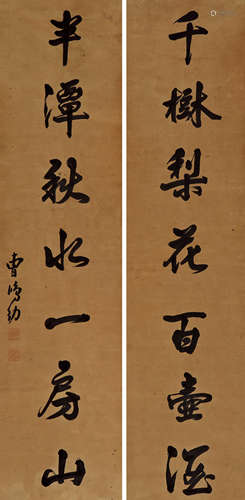 千樹梨花百壺酒
半潭秋水一房山
曹鴻勛